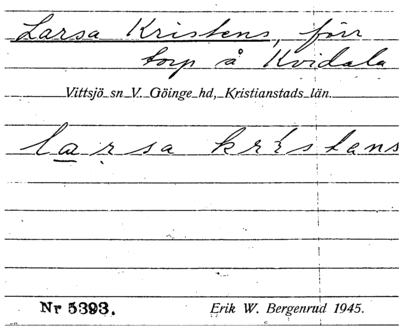 Larsa Kristens, förr
torp å Kvidala
Vittsjö sn V. Göinge hd, Kristianstads län.
la̲rsa krístans
Nr 5393.
Erik W. Bergenrud 1945.